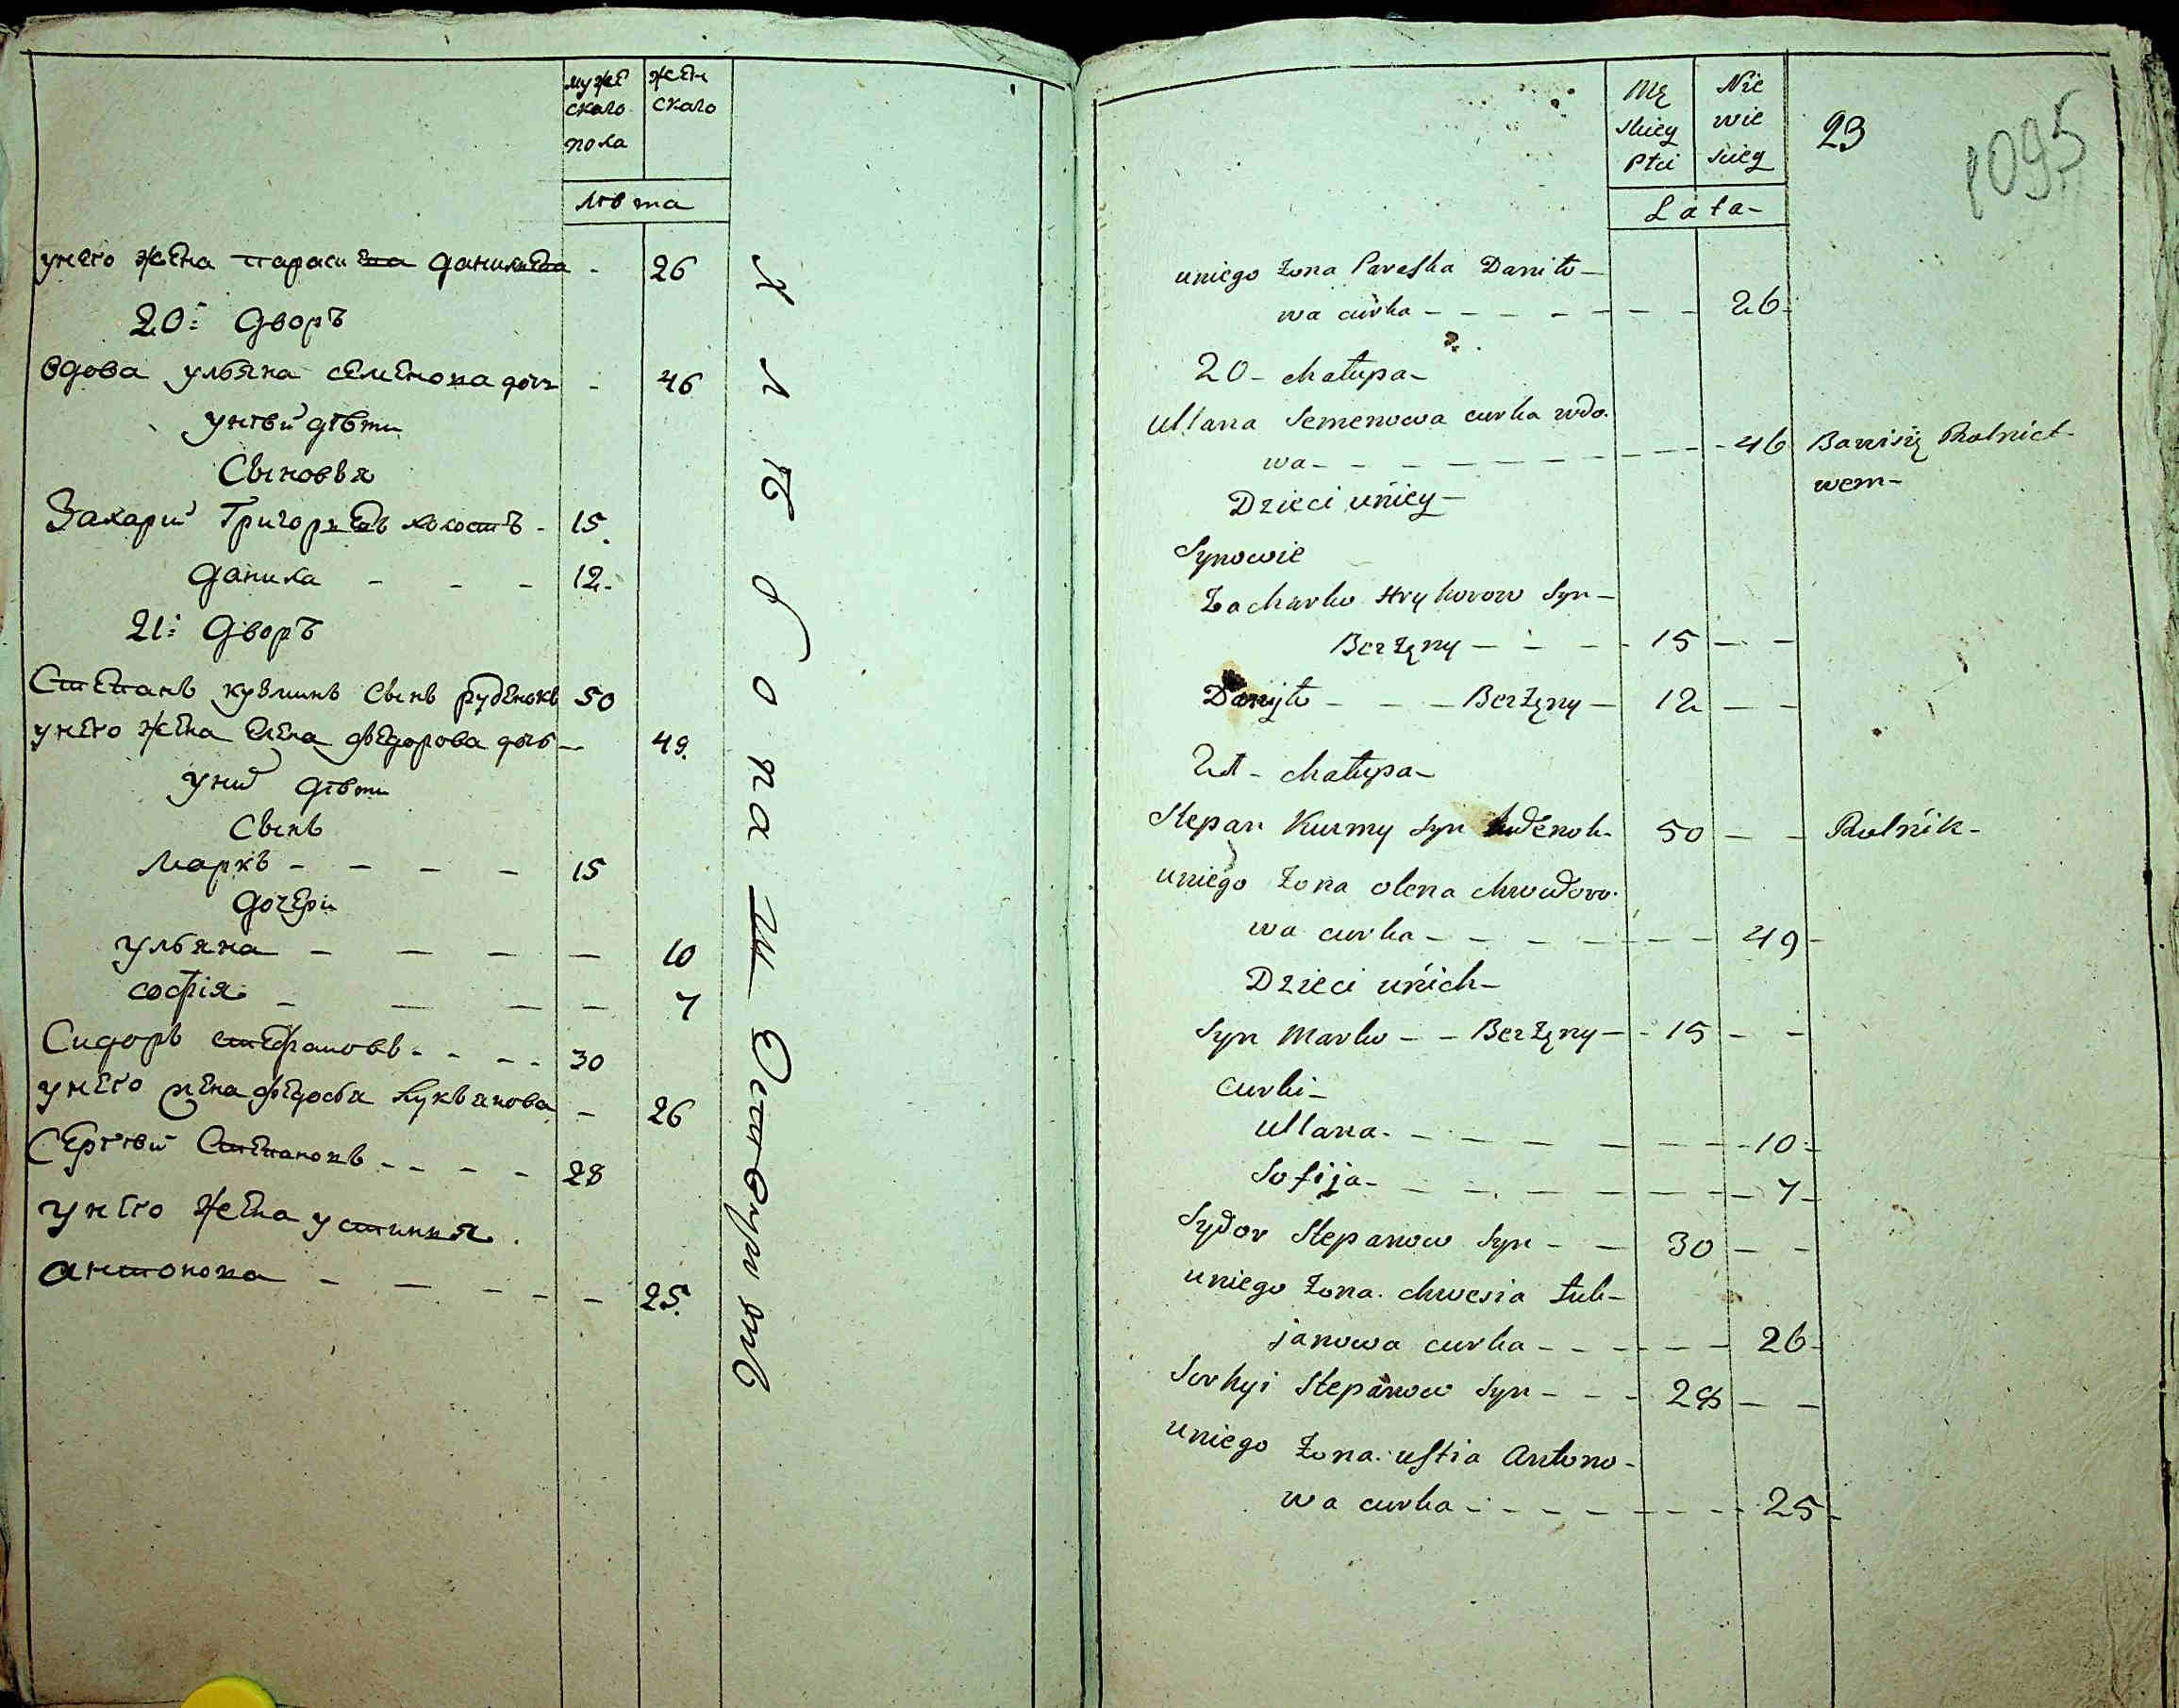 муже
скаго
пола
жен
скаго
лѣта
унего жена параскева данилова - 26
20: Дворъ
вдова ульяна семенова дочь - 46
унѣй дѣти
Сыновья
Захарий Григорьевъ холостъ - 15.
данила - - - 12-
21: Дворъ
Степанъ кузминъ сынъ руденокъ 50
унего жена елена федорова дочь - 49.
уних дѣти
Сынъ
маркъ - - - - 15
дочери
ульяна - - - - 10
софія - - - - 7
Сидоръ стефановъ - - - - 30
унего жена федосья лукьянова - 26
Сергѣй Степановъ - - - - 28
унего жена устинья
антонова - - - - - - 25.
Mę
skiey
Płci
Nie
wie
sciey
23
1095
Lata-
uniego żona Paraska Daniło-
wa curka - - - - - - - 26-
20- chałupa-
Ullana Semenowa curka wdo-
wa - - - - - - - - 46 Bawisię Rolnict-
wem-
Dzieci uniey-
Synowie
Zacharko Hryhorow Syn-
Berżęny - - - - 15 - -
Danyło - - - Berżęny - 12 - -
21- chałupa-
Stepan Kuzmy Syn Rudenok- 50 - - Rolnik-
uniego żona olena chwedoro-
wa curka - - - - - - - 49-
Dzieci unich-
Syn Marko - - Berżęny - - 15 - -
Curki-
Ullana - - - - - - - - 10-
Sofija - - - - - - - - 7-
Sydor Stepanow Syn - - 30 - -
uniego żona chwesia łuk-
janowa curka - - - - - - 26-
Serhyi Stepanow Syn - - - 28 - -
uniego żona ustia Antono-
wa curka - - - - - - - - 25-